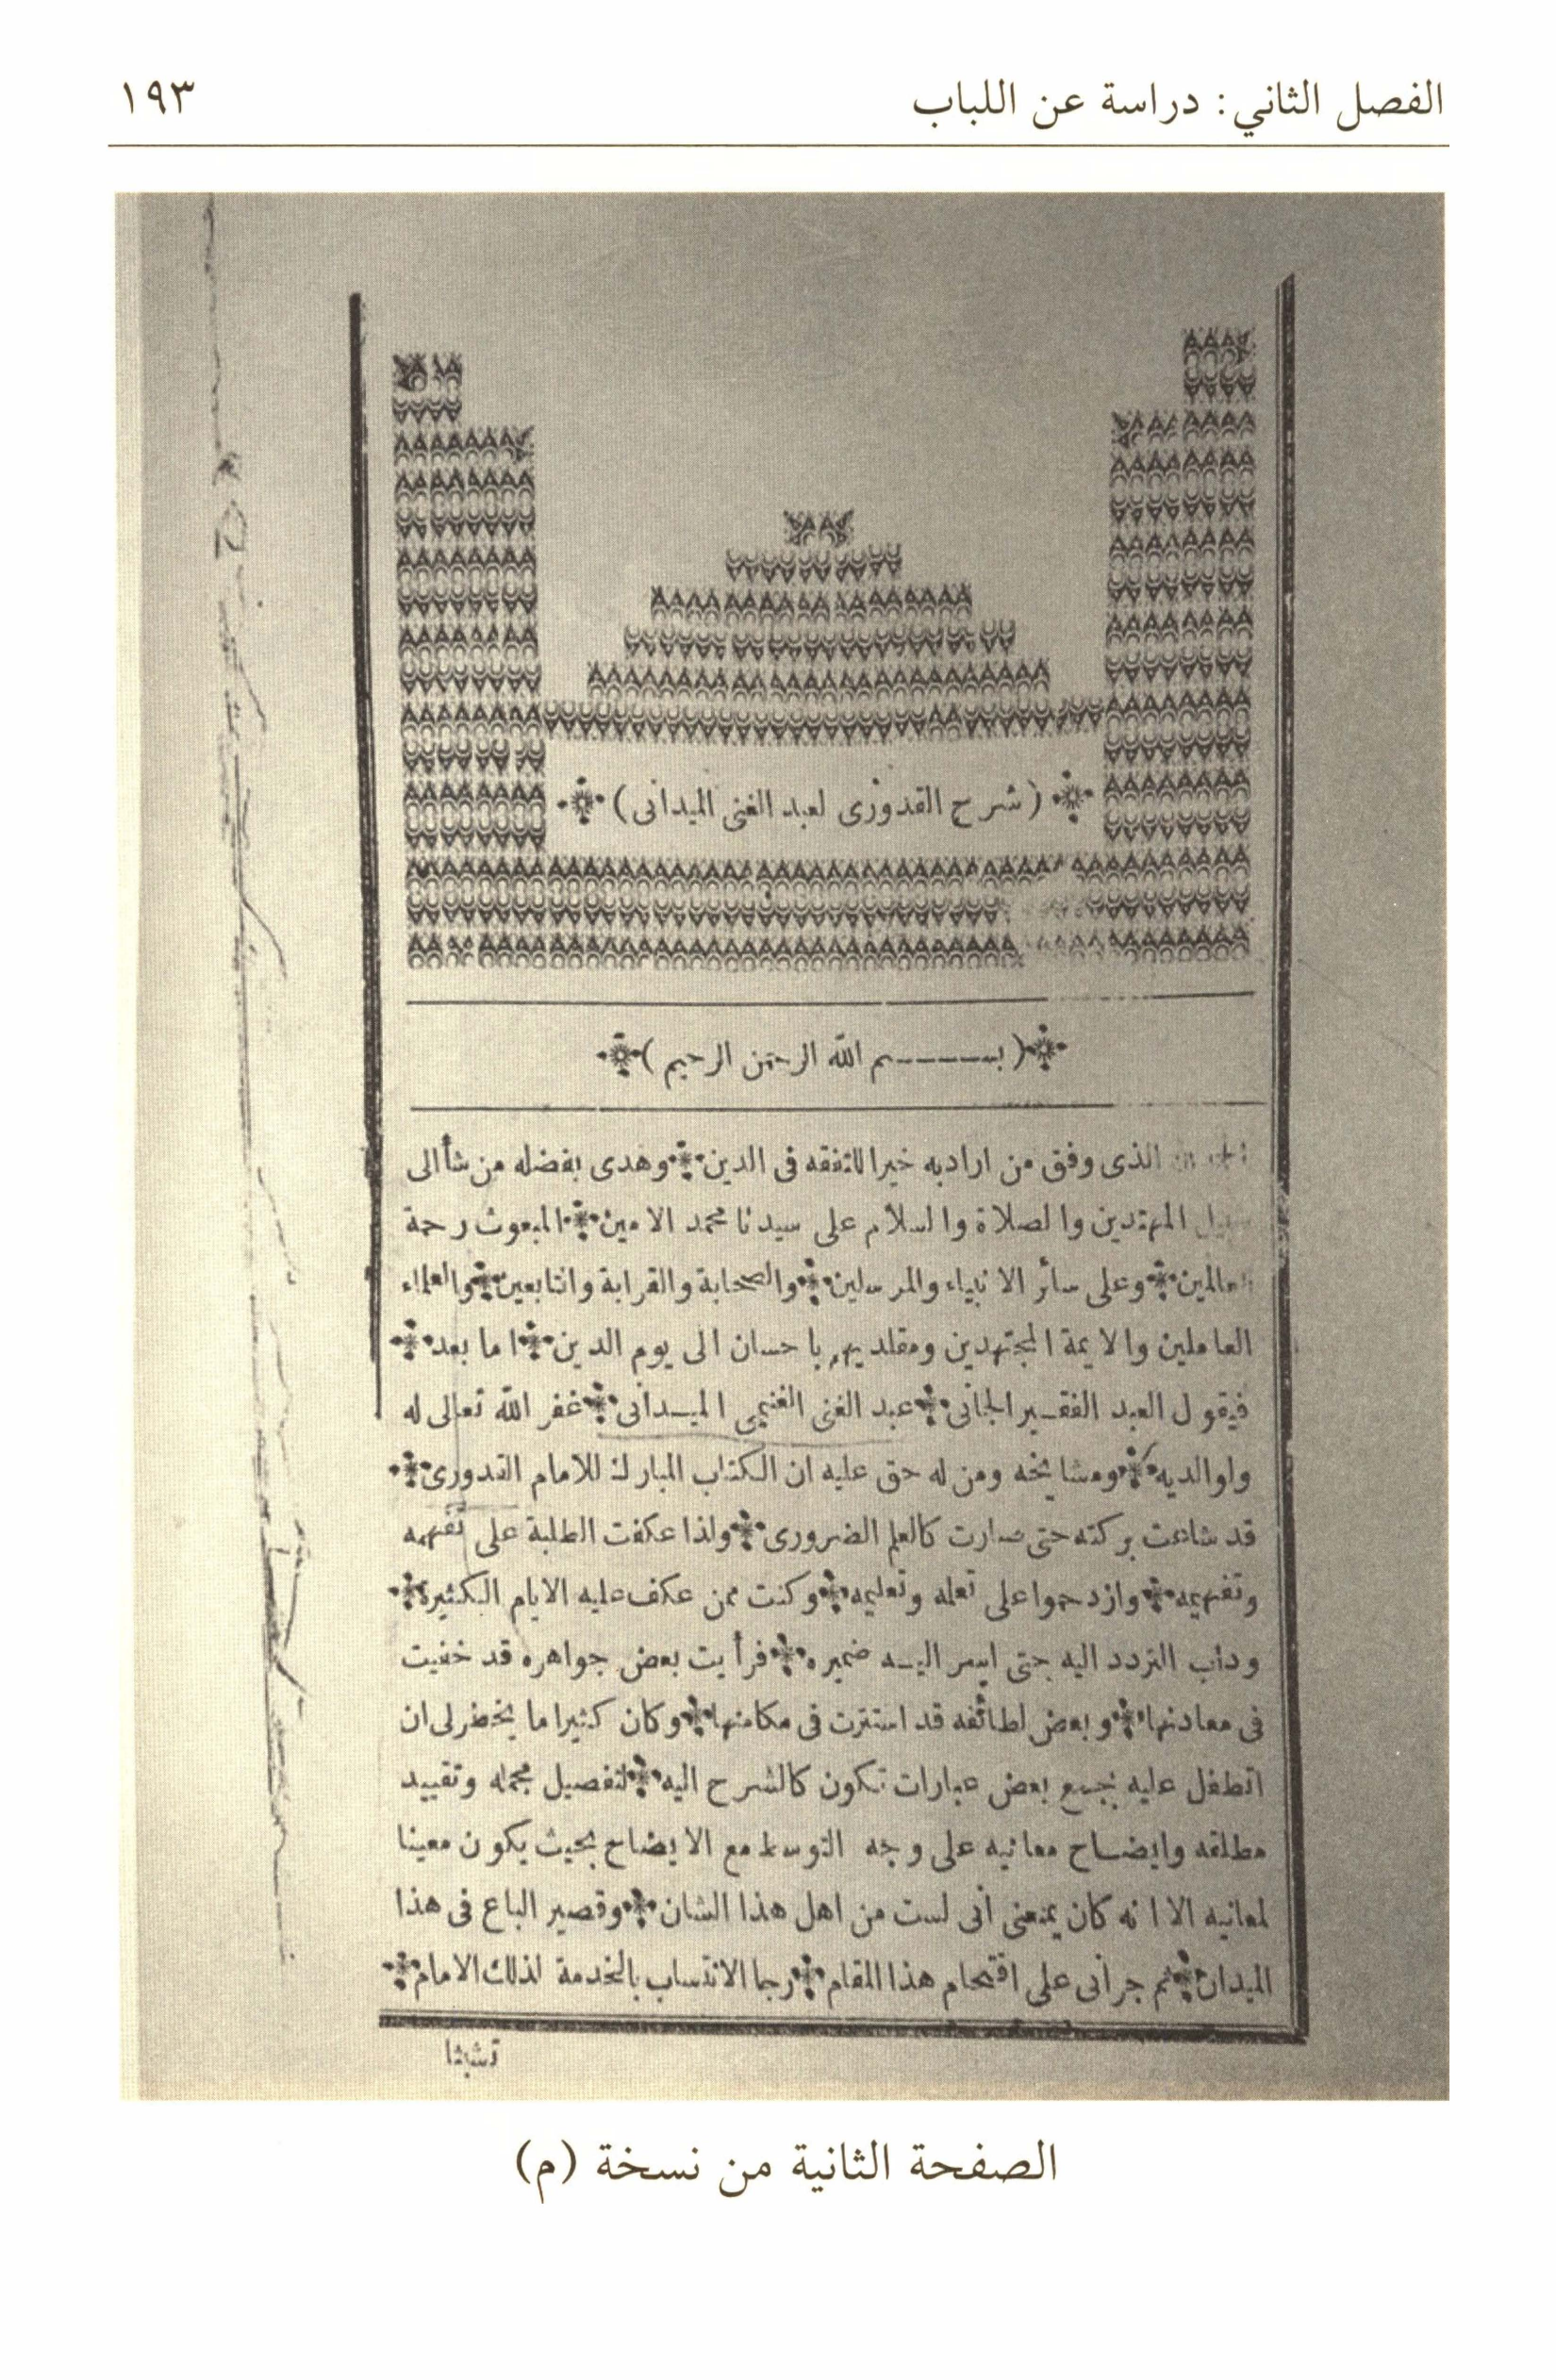 الفصل الثاني: دراسة عن اللباب ١٩٣
(شرح القدورى لعبد الغنى الميدانى)
(بسم الله الرحمن الرحيم)
الذى وفق من اراد به خيرا للتفقه فى الدين * وهدى بفضله من شأ الى
المهتدين والصلاة والسلام على سيدنا محمد الامين * المبعوث رحمة
للعالمين * وعلى سائر الانبياء والمرسلين * والصحابة والقرابة والتابعين * والعلماء
العاملين والايمة المجتهدين ومقلديهم باحسان الى يوم الدين * اما بعد *
فيقول العبد الفقير الجانى * عبد الغنى الغنيمى الميدانى * غفر الله تعالى له
ولوالديه * ومشايخه ومن له حق عليه ان الكتاب المبارك للامام القدورى *
قد شاعت بركته حتى صارت كالعلم الضرورى * ولذا عكفت الطلبة على تفهمه
وتفهيمه * وازدحموا على تعلمه وتعليمه * وكنت ممن عكف عليه الايام الكثيرة *
ودأب التردد اليه حتى اسر اليه ضميره * فرأيت بعض جواهره قد خفيت
فى معادنها * وبعض لطائفه قد استترت فى مكامنها * وكان كثيرا ما يخطر لى ان
اتطفل عليه بجمع بعض عبارات تكون كالشرح اليه * لتفصيل مجمله وتقييد
مطلقه وايضاح معانيه على وجه التوسط مع الايضاح بحيث يكون معينا
لمعانيه الا انه كان يمنعنى أنى لست من اهل هذا الشان * وقصير الباع فى هذا
الميدان * ثم جرانى على اقتحام هذا المقام * رجا الانتساب بالخدمة لذلك الامام *
تشبثا
الصفحة الثانية من نسخة (م)